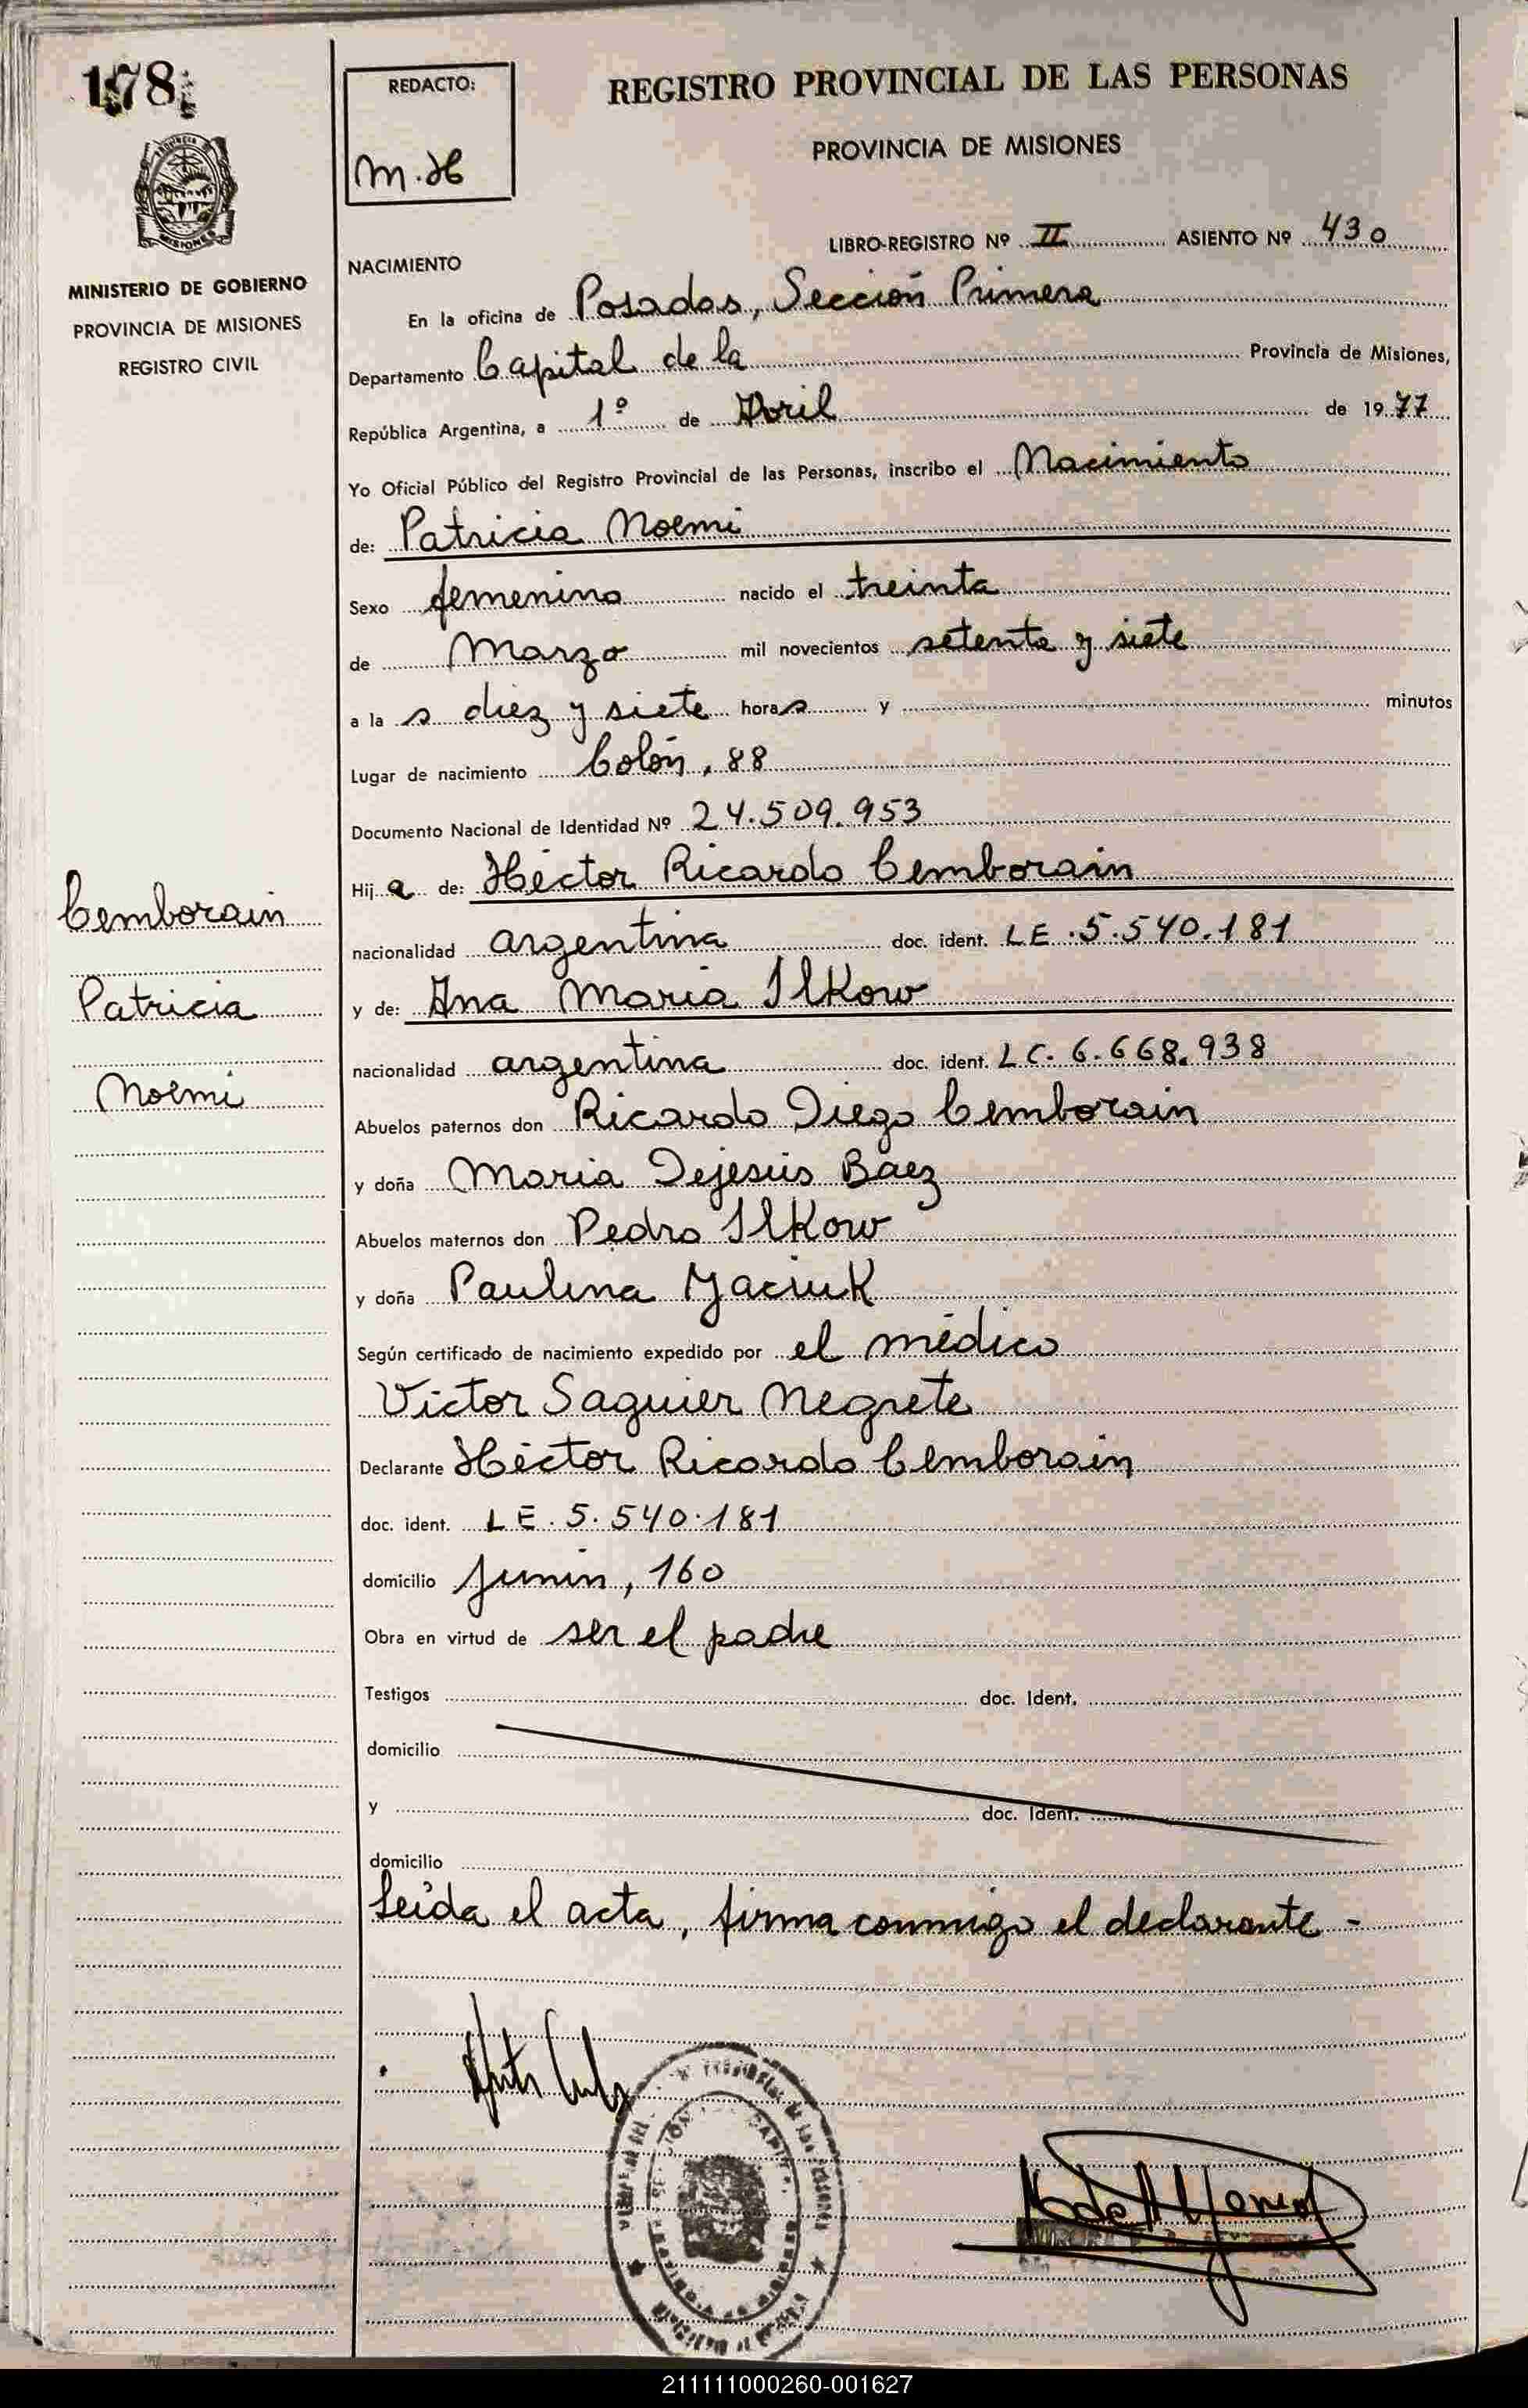 178
REDACTO:
M.H
REGISTRO PROVINCIAL DE LAS PERSONAS
PROVINCIA DE MISIONES
MISIONES
MINISTERIO DE GOBIERNO
PROVINCIA DE MISIONES
REGISTRO CIVIL
LIBRO-REGISTRO Nº II ASIENTO Nº 430
NACIMIENTO
En la oficina de Posadas, Sección Primera
Departamento Capital de la Provincia de Misiones,
República Argentina, a 1º de Abril de 1977
Yo Oficial Público del Registro Provincial de las Personas, inscribo el Nacimiento
de: Patricia Noemi
Sexo femenino nacido el treinta
de Marzo mil novecientos setenta y siete
a la s diez y siete horas y minutos
Lugar de nacimiento Colón, 88
Documento Nacional de Identidad Nº 24.509.953
Hija de: Héctor Ricardo Cemborain
nacionalidad argentina doc. ident. LE.5.540.181
y de: Ana Maria Ilkow
nacionalidad argentina doc. ident. LC.6.668.938
Abuelos paternos don Ricardo Diego Cemborain
y doña Maria Dejesús Báez
Abuelos maternos don Pedro Ilkow
y doña Paulina Yaciuk
Según certificado de nacimiento expedido por el médico
Victor Saguier Negrete
Declarante Héctor Ricardo Cemborain
doc. ident. LE.5.540.181
domicilio Junín, 160
Obra en virtud de ser el padre
Testigos doc. Ident.
domicilio
y doc. Ident.
domicilio
Leída el acta, firma conmigo el declarante -
Cemborain
Patricia
Noemí
211111000260-001627